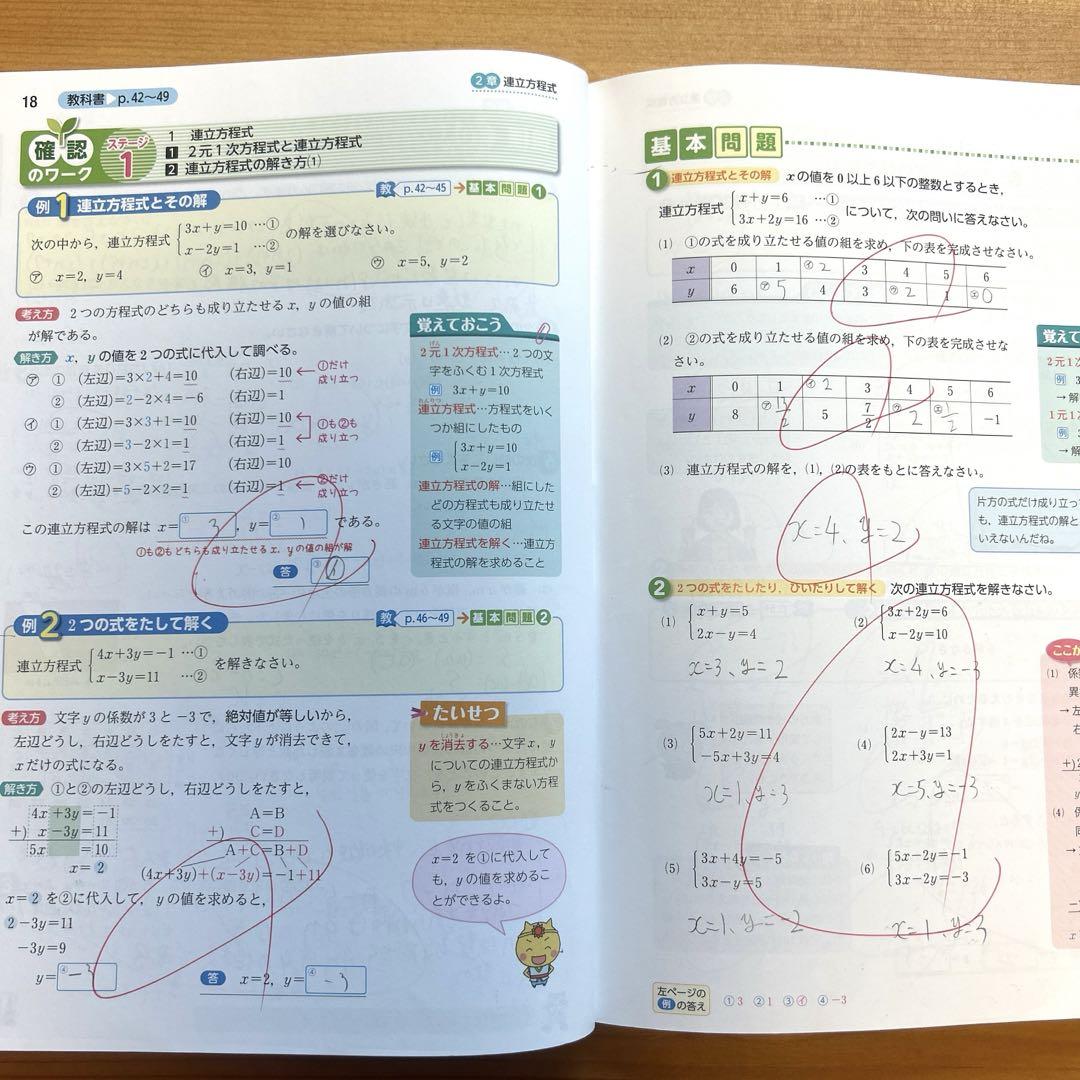 18 教科書 p.42〜49
2章 連立方程式
確認のワーク
ステージ1
1 連立方程式
1 2元1次方程式と連立方程式
2 連立方程式の解き方(1)
例1 連立方程式とその解
教 p.42〜45 → 基本問題 1
次の中から,連立方程式 { 3x+y=10 …① x−2y=1 …② の解を選びなさい。
㋐ x=2, y=4 ㋑ x=3, y=1 ㋒ x=5, y=2
考え方 2つの方程式のどちらも成り立たせる x, y の値の組
が解である。
解き方 x, y の値を2つの式に代入して調べる。
㋐ ① (左辺)=3×2+4=10 (右辺)=10 ←①だけ成り立つ
② (左辺)=2−2×4=−6 (右辺)=1
㋑ ① (左辺)=3×3+1=10 (右辺)=10 ①も②も成り立つ
② (左辺)=3−2×1=1 (右辺)=1
㋒ ① (左辺)=3×5+2=17 (右辺)=10
② (左辺)=5−2×2=1 (右辺)=1 ←②だけ成り立つ
この連立方程式の解は x= ① 3 , y= ② 1 である。
①も②もどちらも成り立たせる x, y の値の組が解
答 ③ ㋑
覚えておこう
2元1次方程式…2つの文
字をふくむ1次方程式
例 3x+y=10
連立方程式…方程式をいく
つか組にしたもの
例 { 3x+y=10 x−2y=1
連立方程式の解…組にした
どの方程式も成り立たせ
る文字の値の組
連立方程式を解く…連立方
程式の解を求めること
例2 2つの式をたして解く
教 p.46〜49 → 基本問題 2
連立方程式 { 4x+3y=−1 …① x−3y=11 …② を解きなさい。
考え方 文字 y の係数が3と−3で,絶対値が等しいから,
左辺どうし,右辺どうしをたすと,文字 y が消去できて,
x だけの式になる。
解き方 ①と②の左辺どうし,右辺どうしをたすと,
4x+3y=−1
+) x−3y=11
5x =10
x=2
A=B
+) C=D
A+C=B+D
(4x+3y)+(x−3y)=−1+11
x=2 を②に代入して,y の値を求めると,
2−3y=11
−3y=9
y= ④ −3
答 x=2, y= ④ −3
たいせつ
y を消去する…文字 x, y
についての連立方程式か
ら,y をふくまない方程
式をつくること。
x=2 を①に代入して
も,y の値を求めるこ
とができるよ。
基本問題
1 連立方程式とその解 x の値を0以上6以下の整数とするとき,
連立方程式 { x+y=6 …① 3x+2y=16 …② について,次の問いに答えなさい。
(1) ①の式を成り立たせる値の組を求め,下の表を完成させなさい。
x 0 1 ㋑2 3 4 5 6
y 6 ㋐5 4 3 ㋒2 1 ㋓0
(2) ②の式を成り立たせる値の組を求め,下の表を完成させな
さい。
x 0 1 ㋑2 3 4 5 6
y 8 ㋐13/2 5 7/2 ㋒2 ㋓1/2 −1
(3) 連立方程式の解を,(1), (2)の表をもとに答えなさい。
x=4、y=2
覚えて
2元1次
例 3
→解
1元1次
例 3
→解
片方の式だけ成り立っ
も,連立方程式の解と
いえないんだね。
2 2つの式をたしたり,ひいたりして解く 次の連立方程式を解きなさい。
(1) { x+y=5 2x−y=4 (2) { 3x+2y=6 x−2y=10
x=3、y=2 x=4、y=−3
(3) { 5x+2y=11 −5x+3y=4 (4) { 2x−y=13 2x+3y=1
x=1、y=3 x=5、y=−3
(5) { 3x+4y=−5 3x−y=5 (6) { 5x−2y=−1 3x−2y=−3
x=1、y=−2 x=1、y=3
ここが
(1) 係
異
→左
右
+)2
(4) 係
同
左ページの例の答え ①3 ②1 ③㋑ ④−3